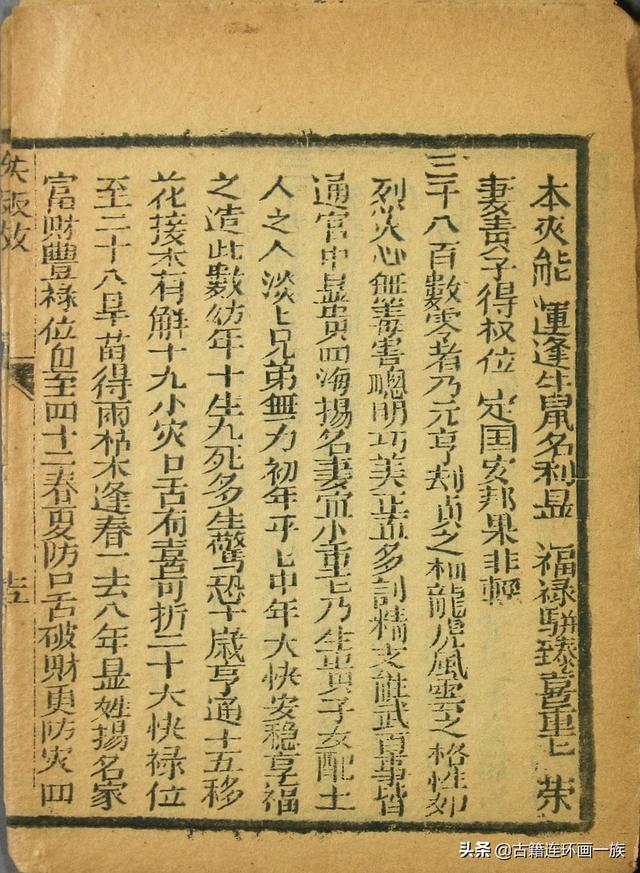 本夾能 運逢牛鼠名利显 福禄駢臻喜重七 荣
妻責子得权位 定国安邦果非輕
三千八百數零者乃元亨利貞之相龍虎風雲之格性如
烈火心無毒害聰明巧美正直多計精文能武百事皆
通官中显貴四海揚名妻宜小重七乃生貴子女配土
人之人淡七兄弟無力初年平七中年大快安穩享福
之造此數幼年十生九死多生驚恐十歲亨通十五移
花接木有解十九小灾口舌有喜可折二十大快禄位
至二十八旱苗得雨枯木逢春一去八年显姓揚名家
富財豐禄位直至四十二春夏防口舌破財更防灾四
头条@古籍连环画一族